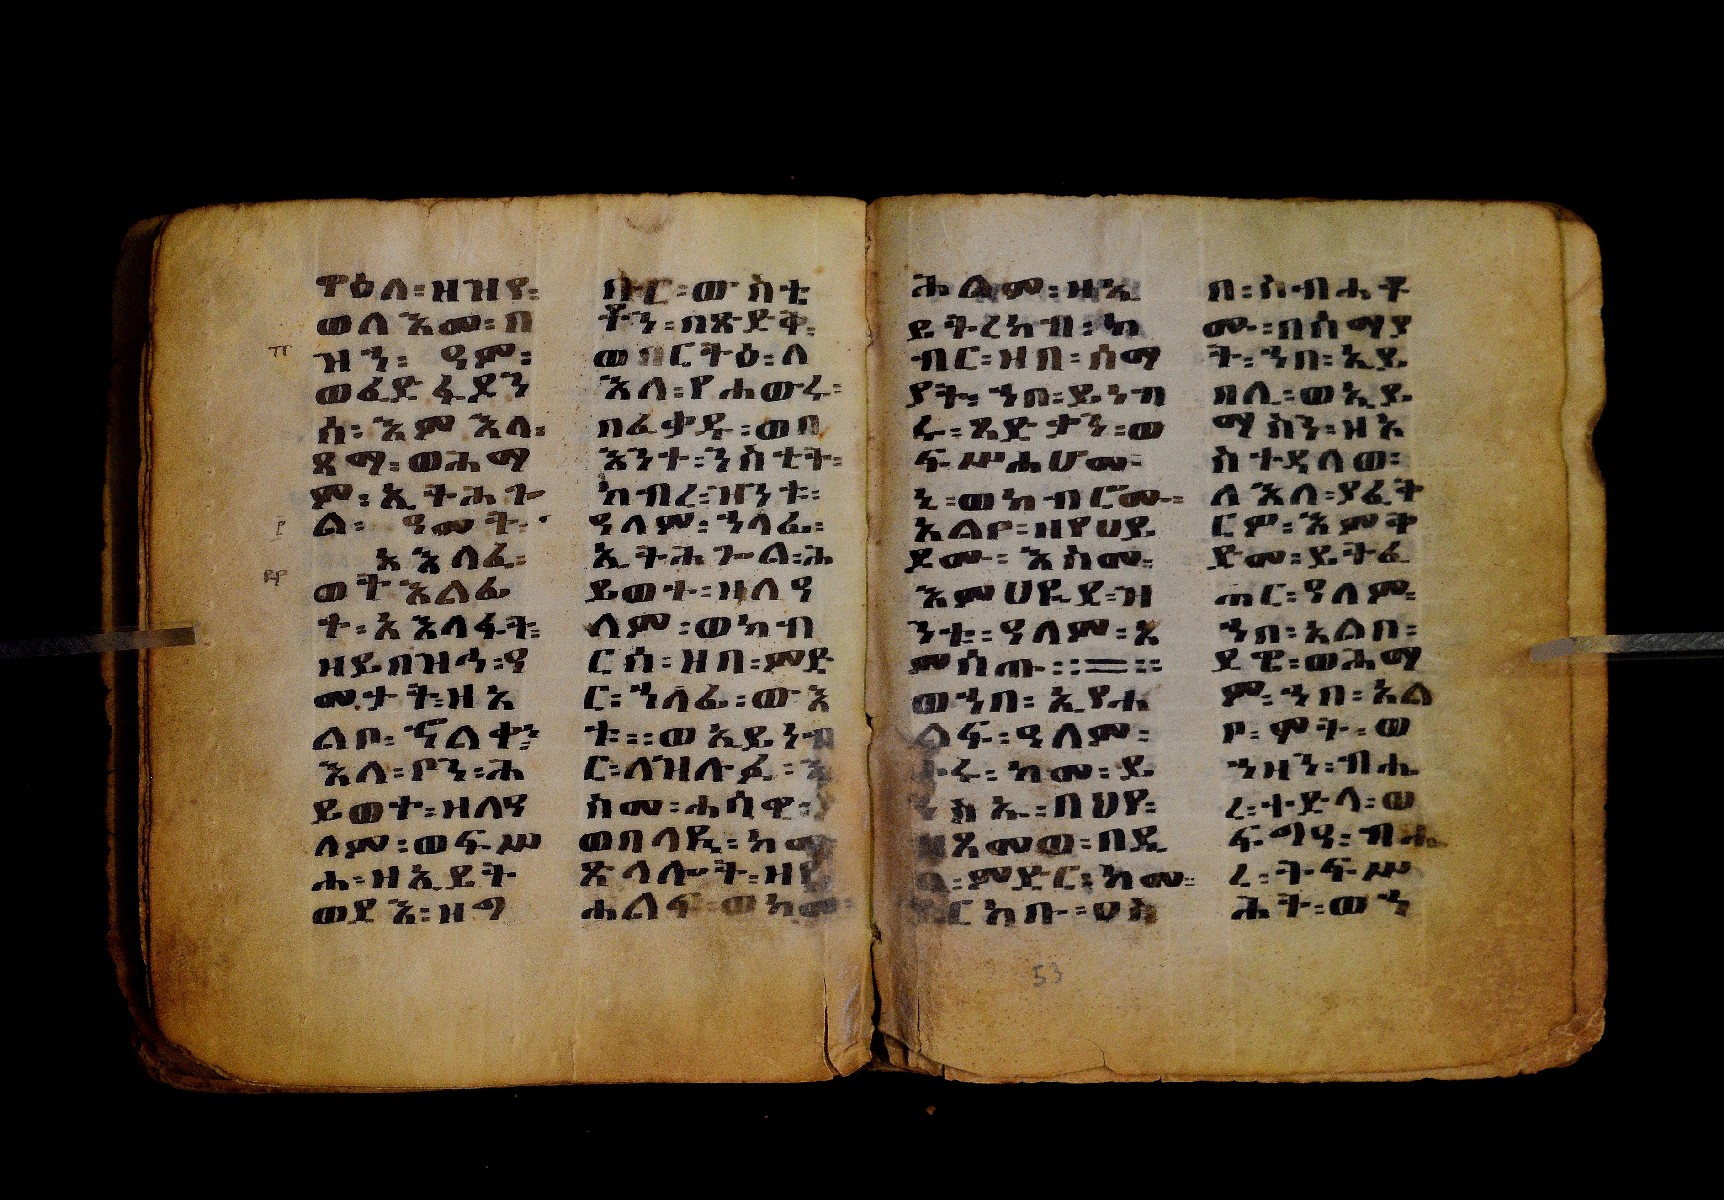 ጥዕለ፡ዘዝየ፡
ወለእመ፡በ
ዝን፡ ዓም፡
ወፈድፋደን
ሰ፡እምእለ፡
ጸማ፡ወሕማ
ም፡ኢትሕጉ
ል፡ ዓመት፡
አእላፈ፡
ወትእልፊ
ት፡አእላፋት፡
ዘይበዝኅ፡ዓ
መታት፡ዘአ
ልቦ፡ኍልቀ፡
እለ፡ቦን፡ሕ
ይወተ፡ዘለዓ
ለም፡ወፍሥ
ሐ፡ዘኢይት
ወደእ፡ዘማ
ብር፡ውስቲ
ቶን፡በጽድቅ፡
ወበርትዕ፡ለ
እለ፡የሐውሩ፡
በፈቃዱ፡ወበ
እንተ፡ንስቲት፡
ክብረ፡ዝንቱ፡
ዓለም፡ኀላፊ፡
ኢትሕጐል፡ሕ
ይወተ፡ዘለዓ
ለም፡ወክብ
ርሰ፡ዘበ፡ምድ
ር፡ኀላፊ፡ውእ
ቱ፡፡ወኢይነብ
ር፡ለዝሉፉ፡
ስመ፡ሐሳዊ፡
ወበላዪ፡ከማ
ጽላሎት፡ዘየ
ሐልፍ፡ወከመ፡
ሕልም፡ዘኢ
ይትረከብ፡ክ
ብር፡ዝበ፡ሰማ
ያት፡ኀበ፡ይነብ
ሩ፡ጻድቃን፡ወ
ፍሥሐሆሙ፡
ኒ፡ወክብሮሙ፡
አልቦ፡ዘየሀይ
ዶሙ፡እስመ፡
እምሀየደ፡ዝ
ንቱ፡ዓለም፡አ
ምሰጡ፡፡
ወኀበ፡ኢየሐ
ልፍ፡ዓለም፡
ሩ፡ከመ፡ይ
ስኡ፡በህየ፡
ጻመወ፡በዲ
በ፡ምድር፡ከመ፡
ይርከቡ፡ህስ
በ፡ስብሐቶ
ሙ፡በሰማያ
ት፡ኀበ፡ኢይ
ዘሊ፡ወኢይ
ማስን፡ዘአ
ስተዳለወ፡
ለእለ፡ያፈት
ርም፡እምቅ
ድመ፡ይትፈ
ጠር፡ዓለም፡
ኀበ፡አልቦ፡
ደዌ፡ወሕማ
ም፡ኀበ፡አል
ቦ፡ሞት፡ወ
ኀዘን፡ብሔ
ረ፡ተድላ፡ወ
ፍግዓ፡ብሔ
ረ፡ትፍሥ
ሕት፡ወኀ
53